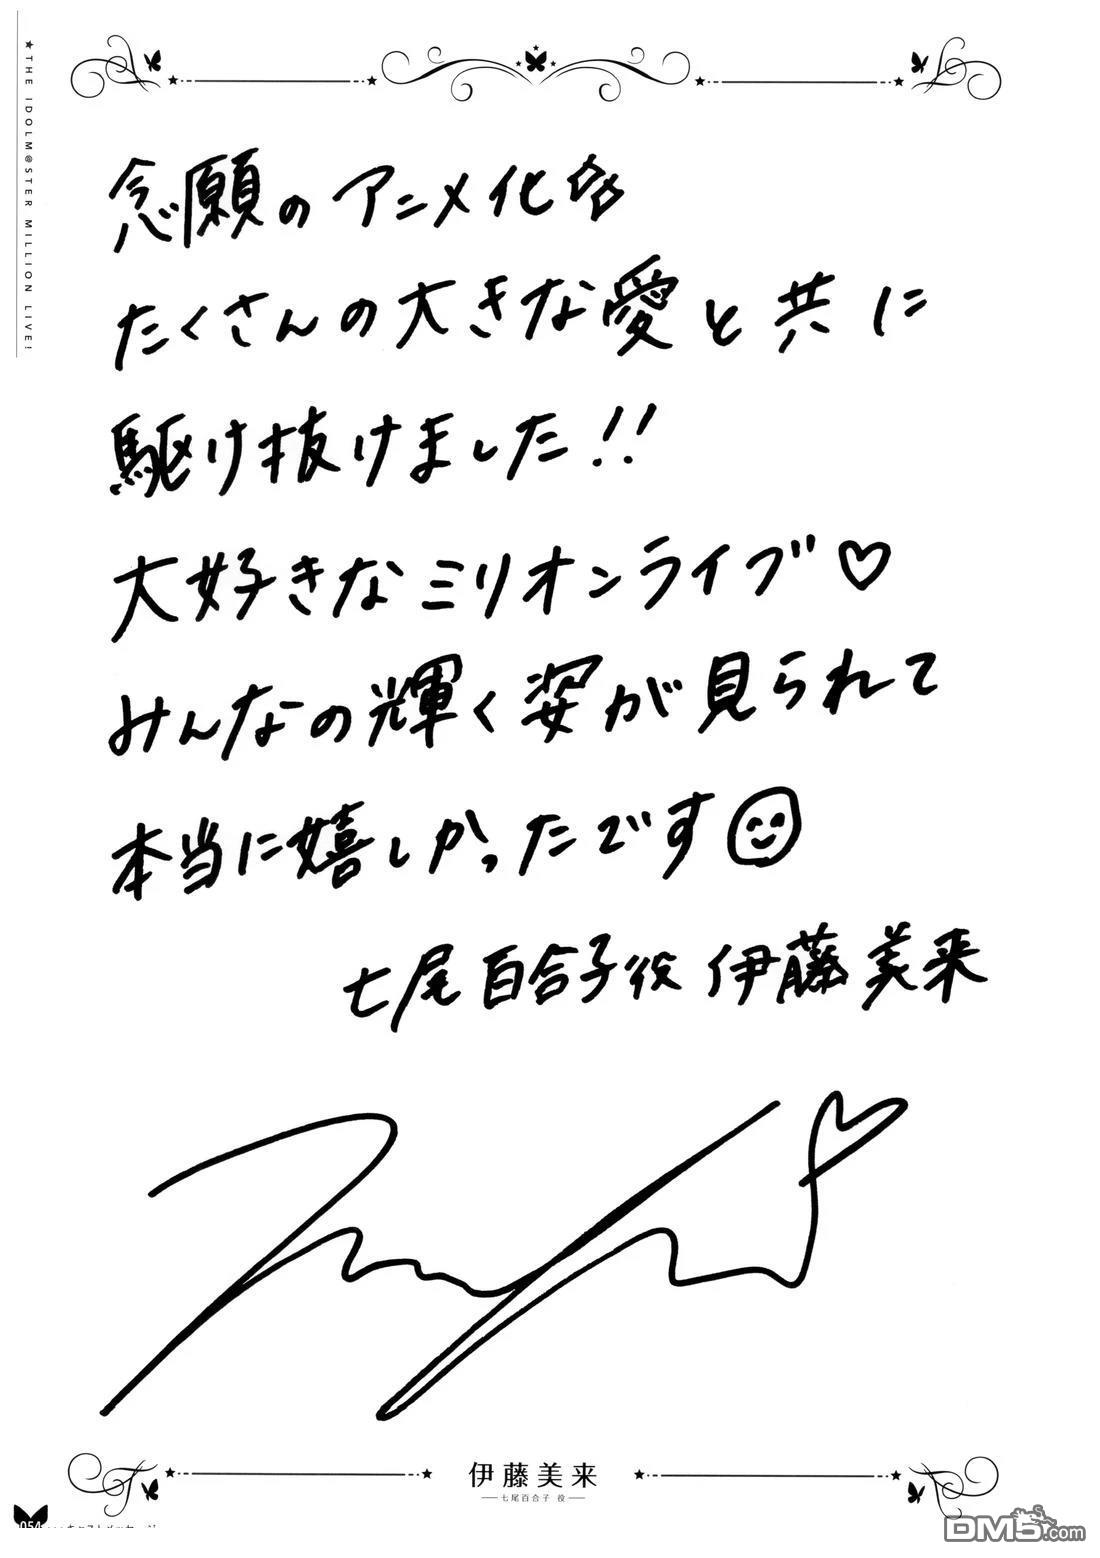 ★THE IDOLM@STER MILLION LIVE!
念願のアニメ化☆☆
たくさんの大きな愛と共に
駆け抜けました!!
大好きなミリオンライブ♡
みんなの輝く姿が見られて
本当に嬉しかったです
七尾百合子役 伊藤美来
伊藤美来
七尾百合子 役
054 キャストメッセージ
DM5.com